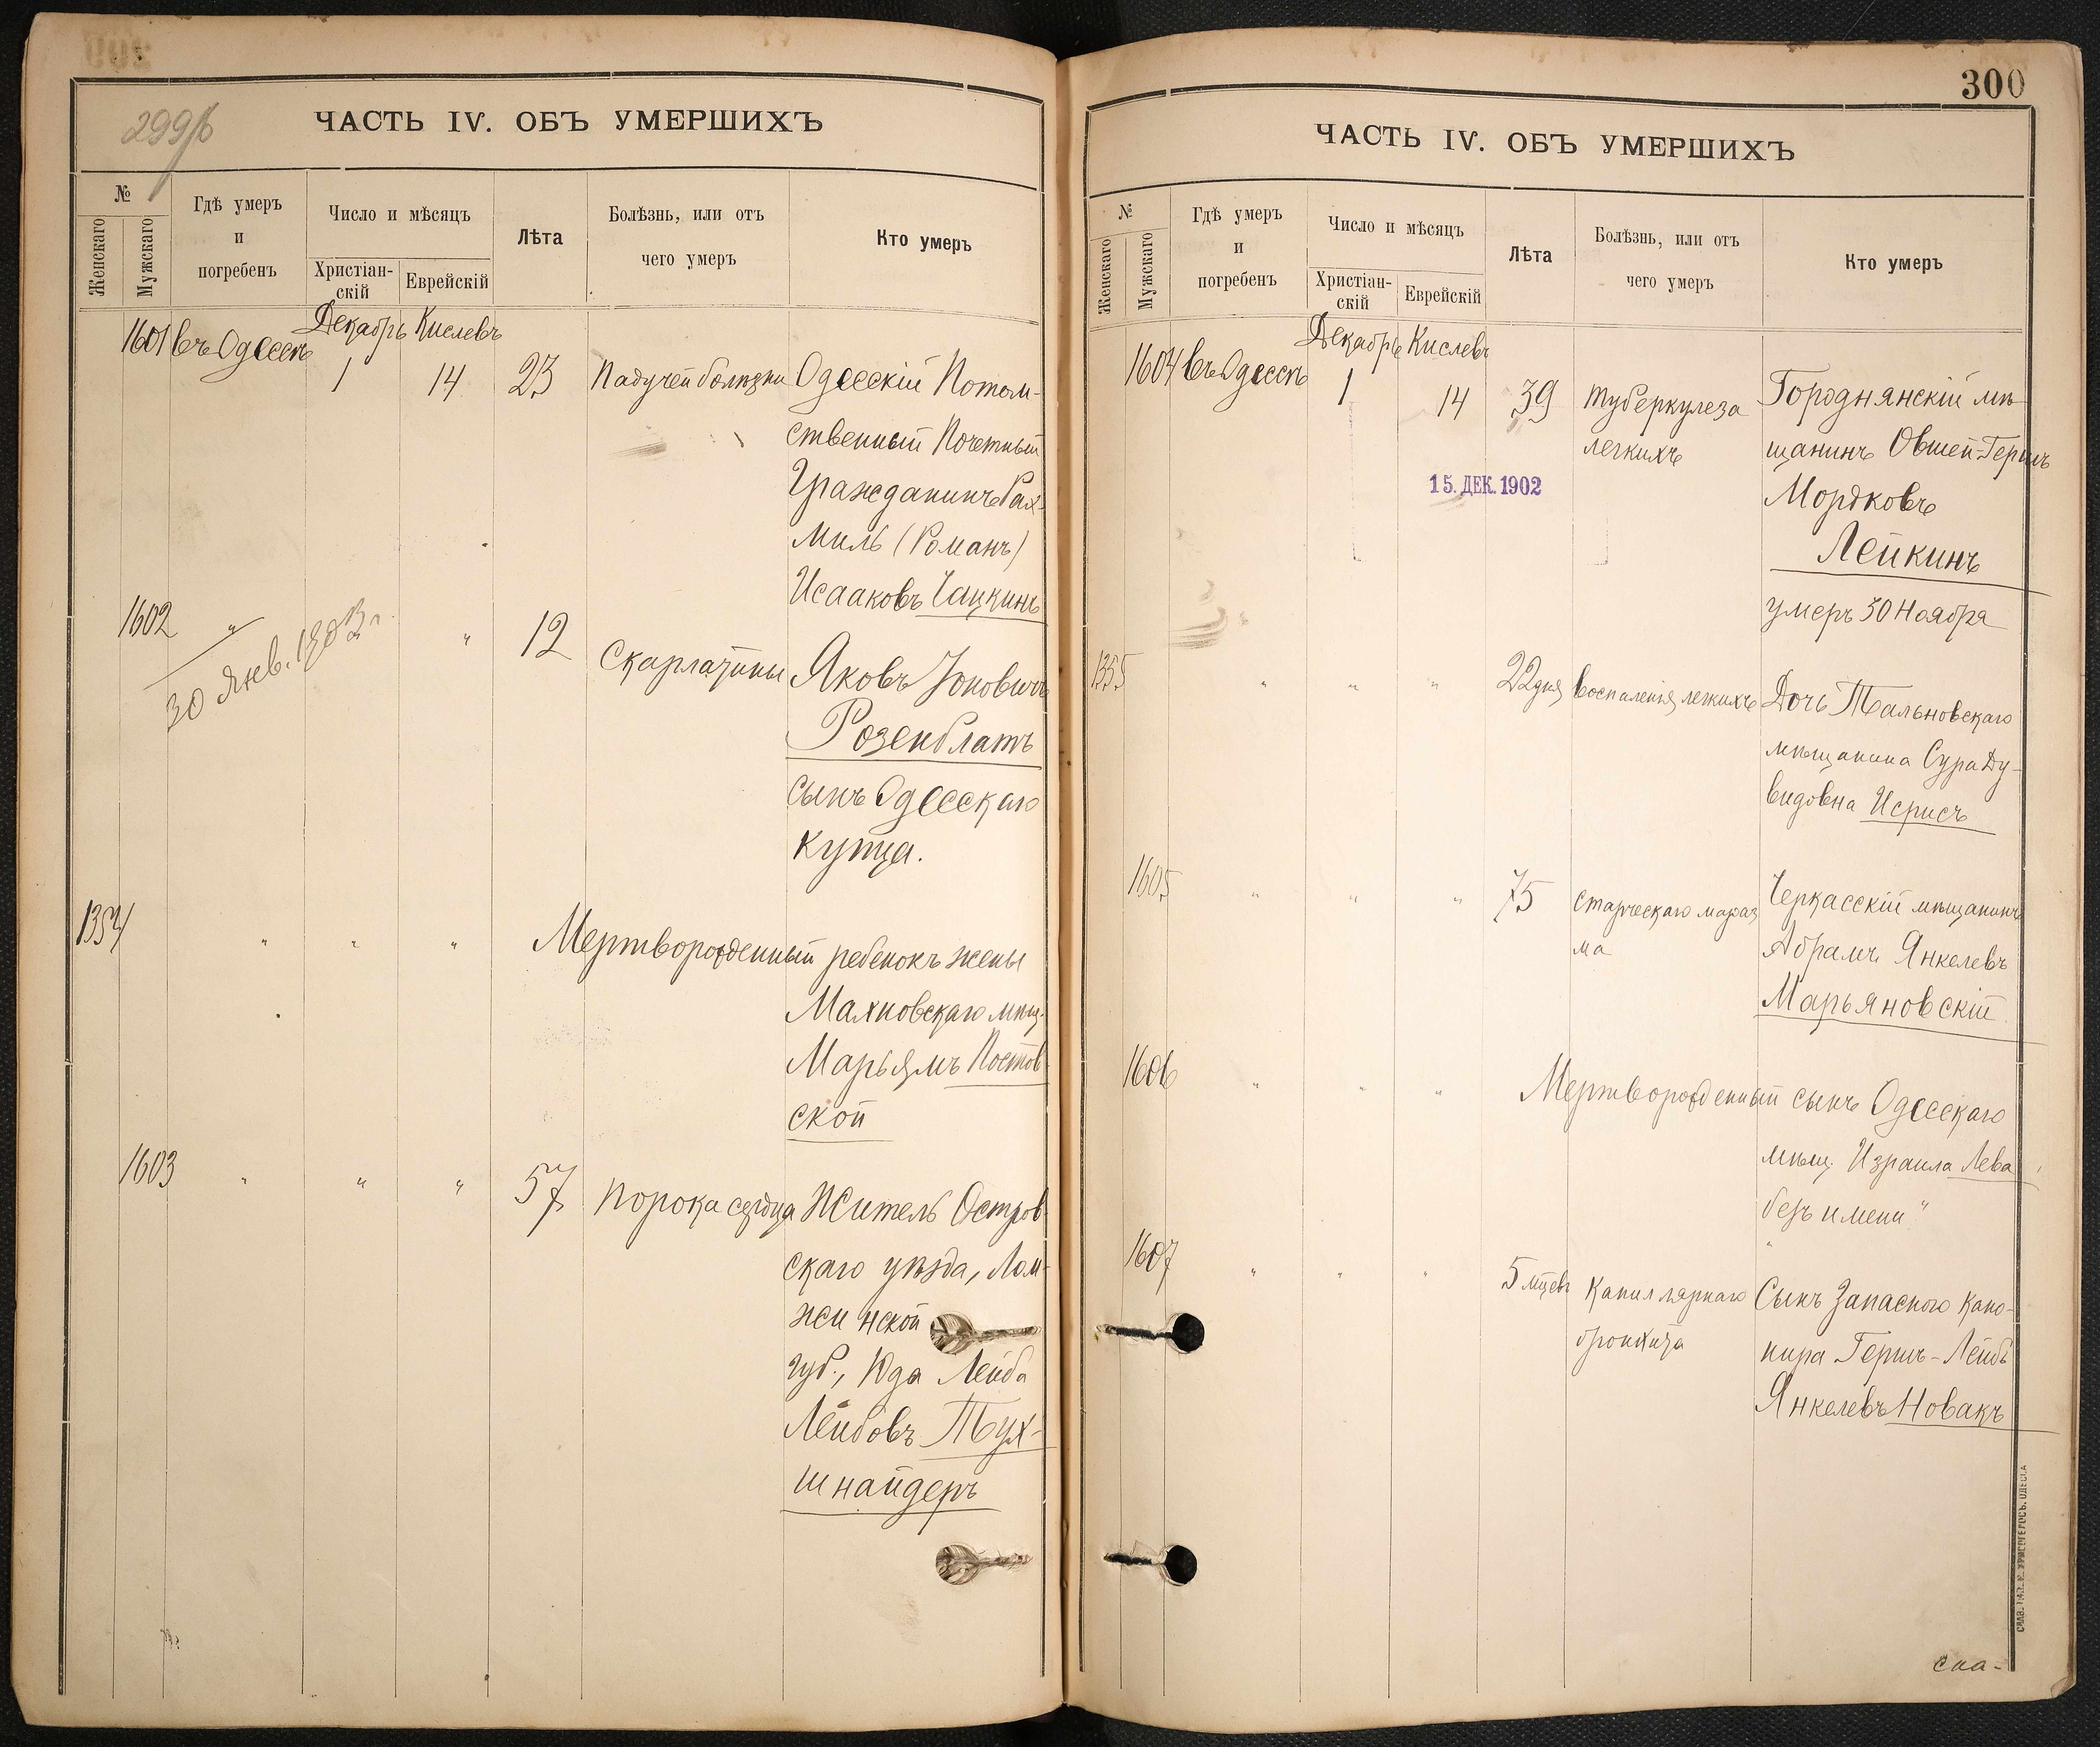 299/б
ЧАСТЬ IV. ОБЪ УМЕРШИХЪ
№
Женскаго
Мужскаго
Гдѣ умеръ
и
погребенъ
Число и мѣсяцъ
Христіан-
скій
Еврейскій
Лѣта
Болѣзнь, или отъ
чего умеръ
Кто умеръ
Декабрь Кислевъ
1601 въ Одессѣ 1 14 23 Падучей болѣзни Одесскій Потом-
ственный Почетный
Гражданинъ Рах-
миль (Романъ)
Исааковъ Чацкинъ
1602 " " 12 Скарлатины Яковъ Іоновичъ
30 Янв. 1903 г.
Розенблатъ
сынъ Одесскаго
купца.
1354 " " " Мертворожденный ребенокъ жены
Махновскаго мѣщ.
Марьямъ Постов-
ской
1603 " " " 57 порока сердца Житель Остров-
скаго уѣзда, Лом-
жинской
губ., Юда Лейба
Лейбовъ Тух-
шнайдеръ
300
ЧАСТЬ IV. ОБЪ УМЕРШИХЪ
№
Женскаго
Мужскаго
Гдѣ умеръ
и
погребенъ
Число и мѣсяцъ
Христіан-
скій
Еврейскій
Лѣта
Болѣзнь, или отъ
чего умеръ
Кто умеръ
Декабрь Кислевъ
1604 въ Одессѣ 1 14 39 туберкулеза Городнянскій мѣ-
легкихъ щанинъ Овшей-Гершъ
15. ДЕК. 1902
Мордковъ
Лейкинъ
умеръ 30 Ноября
1355 " " " 22 дня воспаленія легкихъ Дочь Тальновскаго
мѣщанина Сура Ду-
видовна Исрисъ
1605 " " " 75 старческаго мараз Черкасскій мѣщанинъ
ма Абрамъ Янкелевъ
Марьяновскій
1606 " " " Мертворожденный сынъ Одесскаго
мѣщ. Израила Лева
безъ имени "
1607 " " " 5 мцевъ капиллярнаго Сынъ Запаснаго Кано-
бронхита нира Гершъ-Лейбъ
Янкелевъ Новакъ